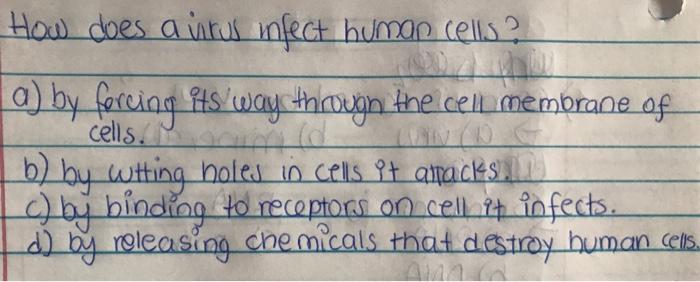 How does a virus infect human cells?
a) by forcing its way through the cell membrane of
cells.
b) by cutting holes in cells it attacks.
c) by binding to receptors on cell it infects.
d) by releasing chemicals that destroy human cells.